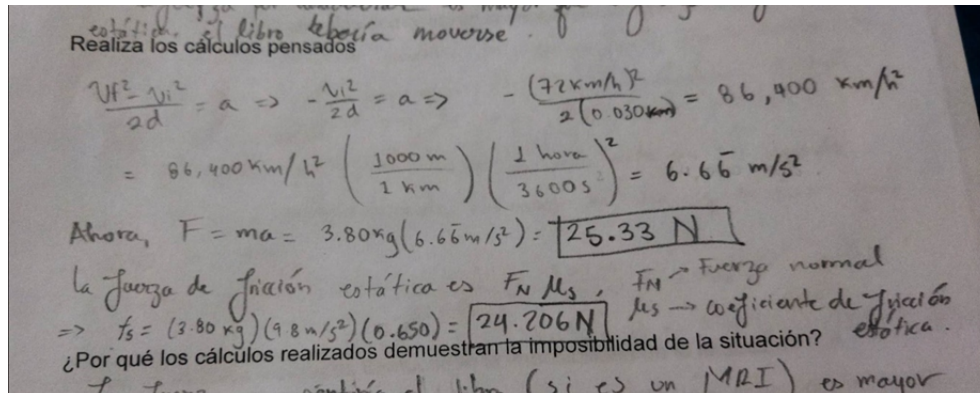 es mayor
estática. el libro debería moverse.
Realiza los cálculos pensados
Vf² - Vi² / 2d = a => - Vi² / 2d = a => - (72 km/h)² / 2(0.030km) = 86,400 km/h²
= 86,400 km/h² (1000 m / 1 km) (1 hora / 3600 s)² = 6.66̄ m/s²
Ahora, F = ma = 3.80kg(6.66̄ m/s²) = 25.33 N
la fuerza de fricción estática es FN μs, FN → Fuerza normal
μs → coeficiente de fricción estática.
=> fs = (3.80 kg)(9.8 m/s²)(0.650) = 24.206 N
¿Por qué los cálculos realizados demuestran la imposibilidad de la situación?
(si es un MRI) es mayor